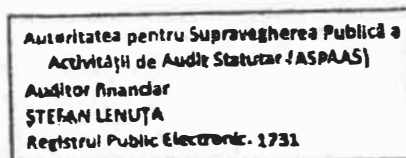 Autoritatea pentru Supravegherea Publică a
Activității de Audit Statutar (ASPAAS)
Auditor financiar
ȘTEFAN LENUȚA
Registrul Public Electronic. 1731